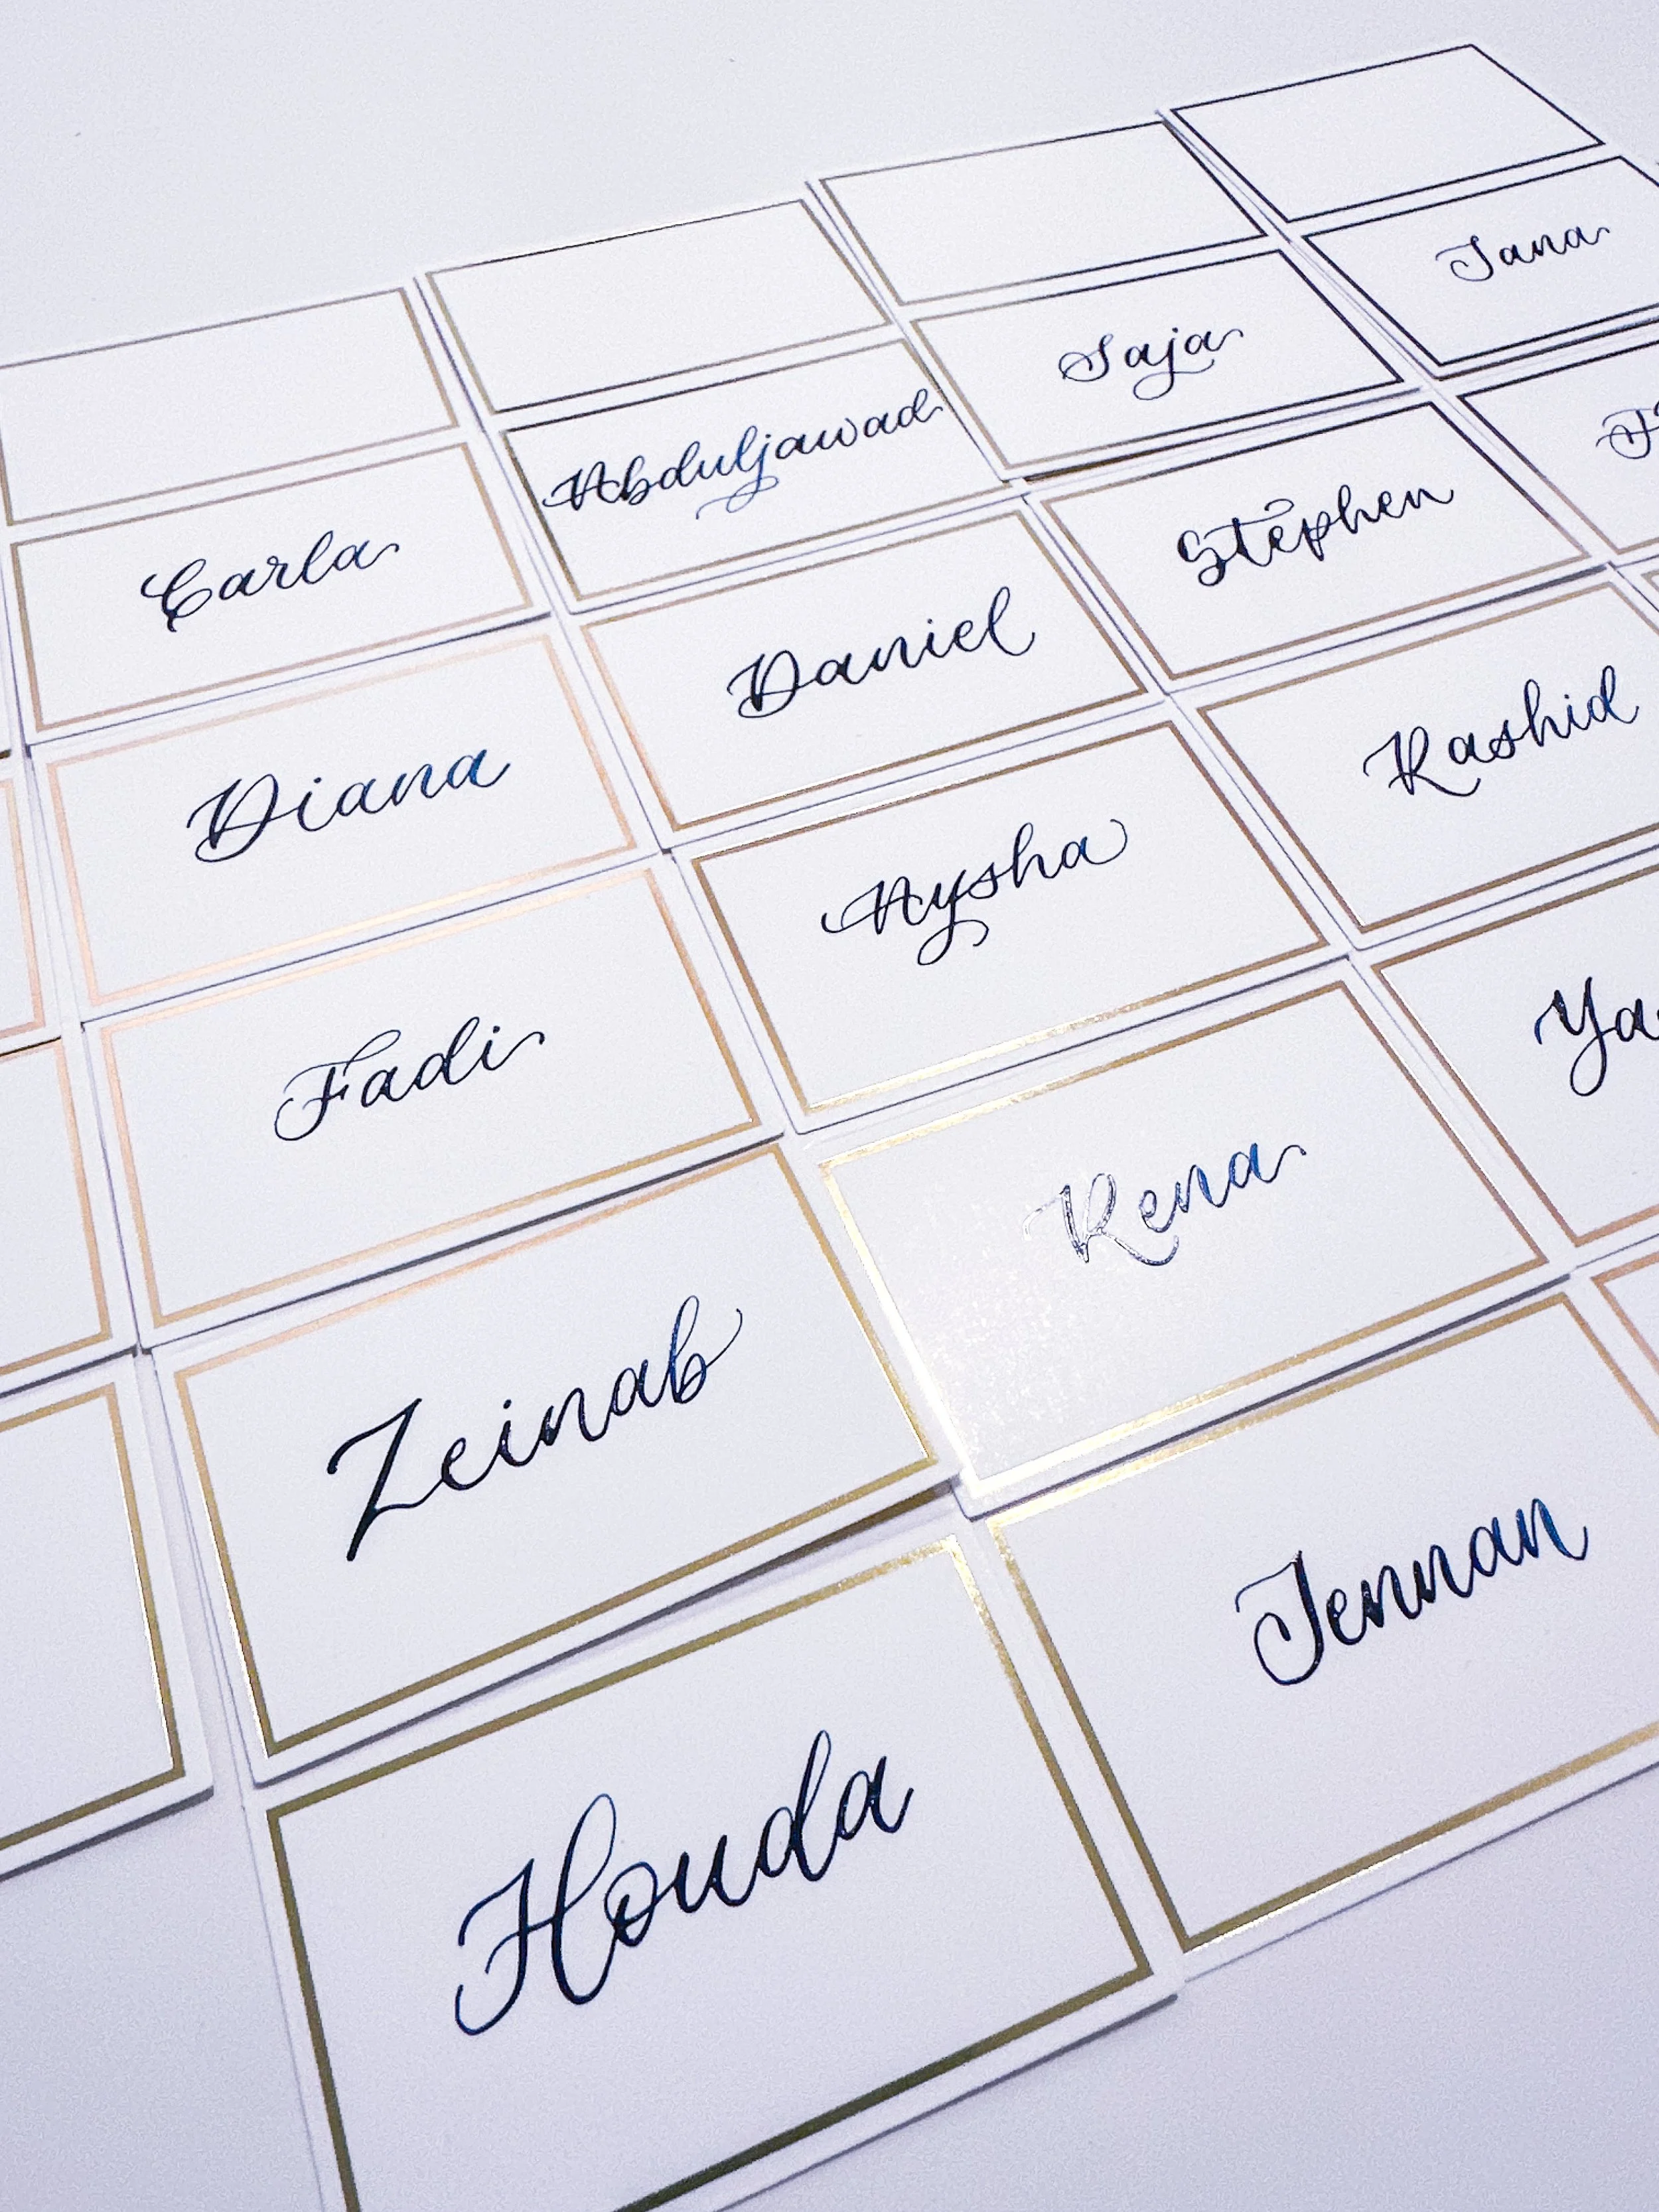 Jana
Saja
Abduljawad
Carla
Stephen
Daniel
Diana
Rashid
Aysha
Fadi
Rena
Zeinab
Jennan
Houda